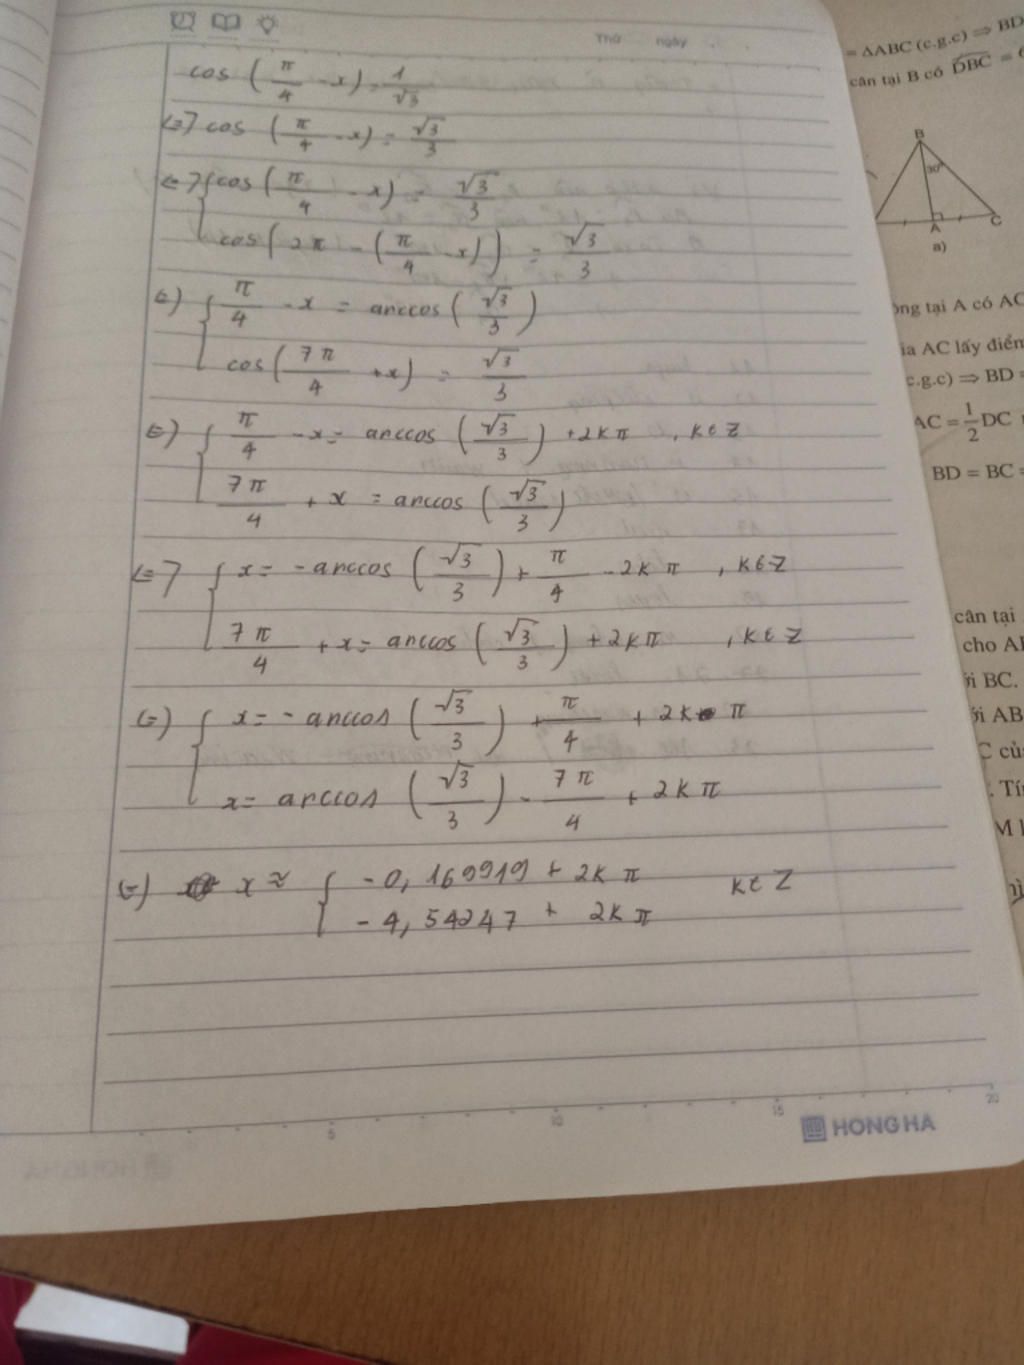 Thứ ngày
cos (π/4 - x) = 1/√3
<=> cos (π/4 - x) = √3/3
<=> { cos (π/4 - x) = √3/3
cos (2π - (π/4 - x)) = √3/3
<=> { π/4 - x = arccos (√3/3)
cos (7π/4 + x) = √3/3
<=> { π/4 - x = arccos (√3/3) + 2kπ , k ∈ Z
7π/4 + x = arccos (√3/3)
<=> { x = - arccos (√3/3) + π/4 - 2kπ , k ∈ Z
7π/4 + x = arccos (√3/3) + 2kπ , k ∈ Z
<=> { x = - arccos (√3/3) + π/4 + 2kπ
x = arccos (√3/3) - 7π/4 + 2kπ
<=> x ≈ { -0,169919 + 2kπ k ∈ Z
-4,54247 + 2kπ
5 10 15 20
HONG HA
= ΔABC (c.g.c) ⇒ BD
cân tại B có DBC =
B
30°
A C
a)
ông tại A có AC
ia AC lấy điểm
c.g.c) ⇒ BD =
AC = 1/2 DC
BD = BC =
cân tại
cho
BC.
AB
C
M